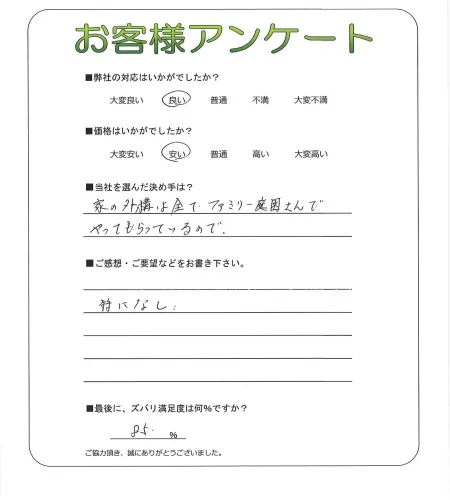 お客様アンケート
■弊社の対応はいかがでしたか?
大変良い 良い 普通 不満 大変不満
■価格はいかがでしたか?
大変安い 安い 普通 高い 大変高い
■当社を選んだ決め手は?
家の外構は全て、ファミリー庭園さんで
やってもらっているので、
■ご感想・ご要望などをお書き下さい。
特になし.
■最後に、ズバリ満足度は何%ですか?
85. %
ご協力頂き、誠にありがとうございました。